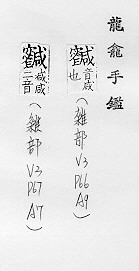 龍龕手鑑
音咸也
(雜部 V3 P66 A9)
二音
(雜部 V3 P67 A7)